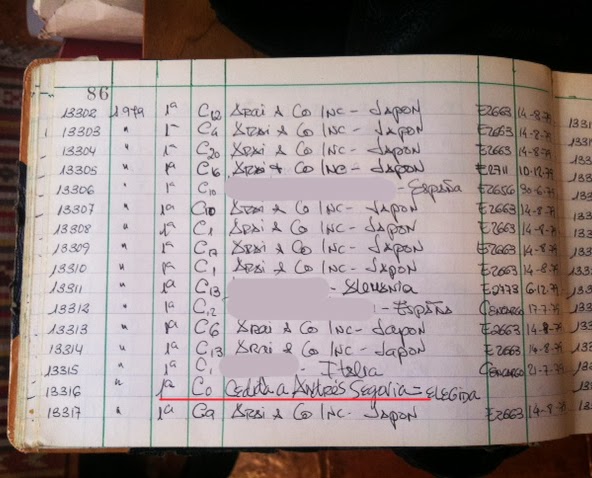 86
13302 1979 1ª C12 Arai & Co Inc - Japon E2663 14-8-79
13303 " 1ª C4 Arai & Co Inc - Japon E2663 14-8-79
13304 " 1ª C20 Arai & Co Inc - Japon E2663 14-8-79
13305 " 1ª C16 Arai & Co Inc - Japon E2711 10-12-79
13306 " 1ª C10 - España 30-6-79
13307 " 1ª C10 Arai & Co Inc - Japon E2663 14-8-79
13308 " 1ª C1 Arai & Co Inc - Japon E2663 14-8-79
13309 " 1ª C17 Arai & Co Inc - Japon E2663 14-8-79
13310 " 1ª C1 Arai & Co Inc - Japon E2663 14-8-79
13311 " 1ª C13 - Alemania E2773 6-12-79
13312 " 1ª C12 - España Cencargo 17-7-79
13313 " 1ª C6 Arai & Co Inc - Japon E2663 14-8-79
13314 " 1ª C13 Arai & Co Inc - Japon E2663 14-8-79
13315 " 1ª - Italia Cencargo 21-7-79
13316 " 1ª C0 Cedida a Andrés Segovia = ELEGIDA
13317 " 1ª C9 Arai & Co Inc - Japon E2663 14-8-79